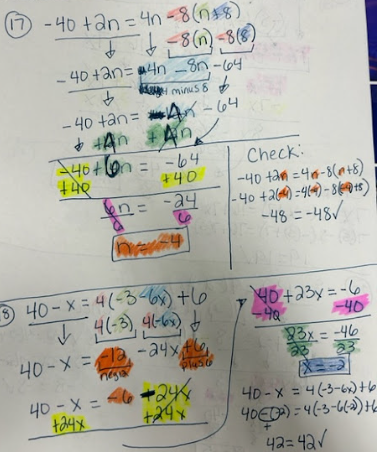 17 -40 + 2n = 4n - 8(n+8)
-8(n) -8(8)
-40 + 2n = 4n - 8n - 64
4 minus 8
-40 + 2n = -4n - 64
+4n +4n
-40 + 6n = -64
+40 +40
6n = -24
6 6
n = -4
Check:
-40 + 2n = 4n - 8(n+8)
-40 + 2(-4) = 4(-4) - 8(-4+8)
-48 = -48✓
8 40 - x = 4(-3 - 6x) + 6
4(-3) 4(-6x)
40 - x = -12 - 24x + 6
plus 6
40 - x = -6 - 24x
+24x +24x
40 + 23x = -6
-40 -40
23x = -46
23 23
x = -2
40 - x = 4(-3-6x)+6
40 - (-2) = 4(-3-6(-2)+6
+
42 = 42✓